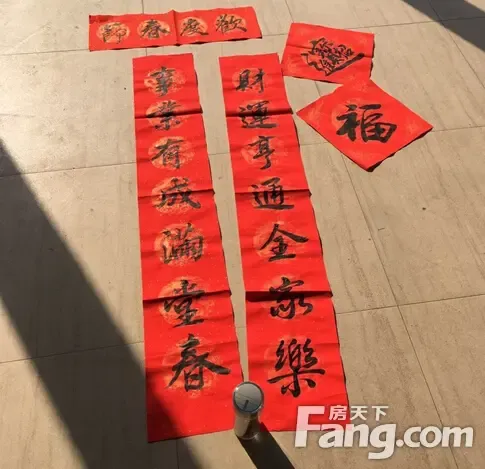 歡慶春節
財運亨通全家樂
事業有成滿堂春
福
房天下
Fang.com